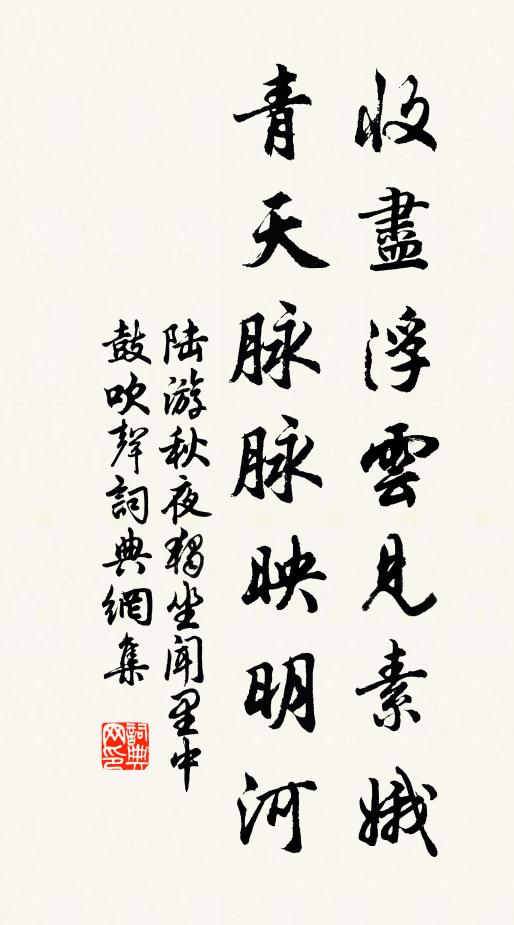 收盡浮雲見素娥
青天脉脉映明河
陆游秋夜獨坐聞里中
鼓吹聲詞典網集
詞典网印